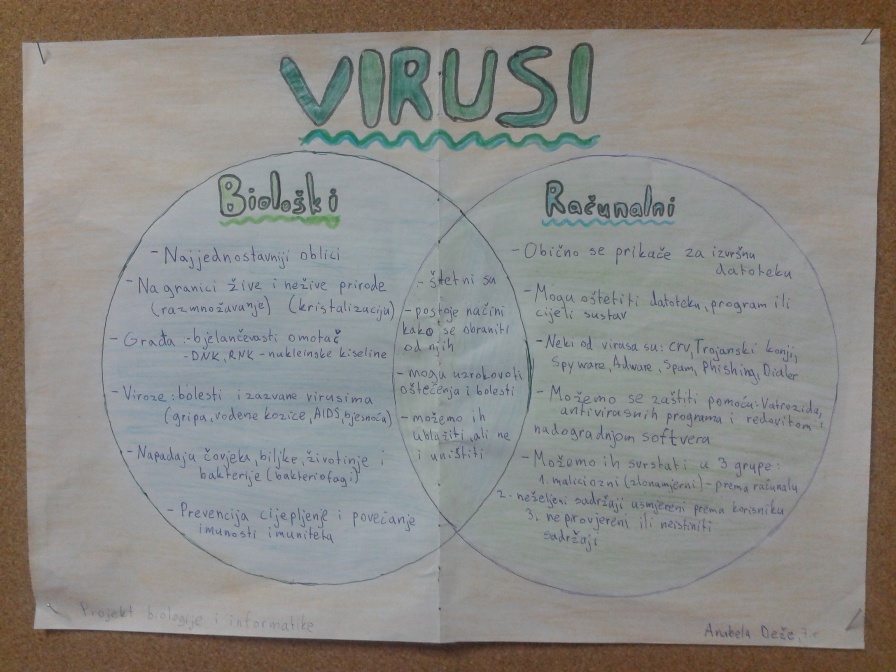 VIRUSI
Biološki
- Najjednostavniji oblici
- Na granici žive i nežive prirode
(razmnožavanje) (kristalizaciju)
- Građa: - bjelančevasti omotač
- DNK, RNK - nukleinske kiseline
- Viroze: bolesti izazvane virusima
(gripa, vodene kozice, AIDS, bjesnoća)
- Napadaju čovjeka, biljke, životinje i
bakterije (bakteriofagi)
- Prevencija cijepljenje i povećanje
imunosti imuniteta
- štetni su
- postoje načini
kako se obraniti
od njih
- mogu uzrokovati
oštećenja i bolesti
- možemo ih
ublažiti, ali ne
i uništiti
Računalni
- Obično se prikače za izvršnu
datoteku
- Mogu oštetiti datoteku, program ili
cijeli sustav
- Neki od virusa su: crv, Trojanski konji,
Spyware, Adware, Spam, Phishing, Dialer
- Možemo se zaštiti pomoću: Vatrozida,
antivirusnih programa i redovitom
nadogradnjom softvera
- Možemo ih svrstati u 3 grupe:
1. maliciozni (zlonamjerni) - prema računalu
2. neželjeni sadržaji usmjereni prema korisniku
3. neprovjereni ili neistiniti
sadržaji
Projekt biologije i informatike
Anabela Deže, 7.